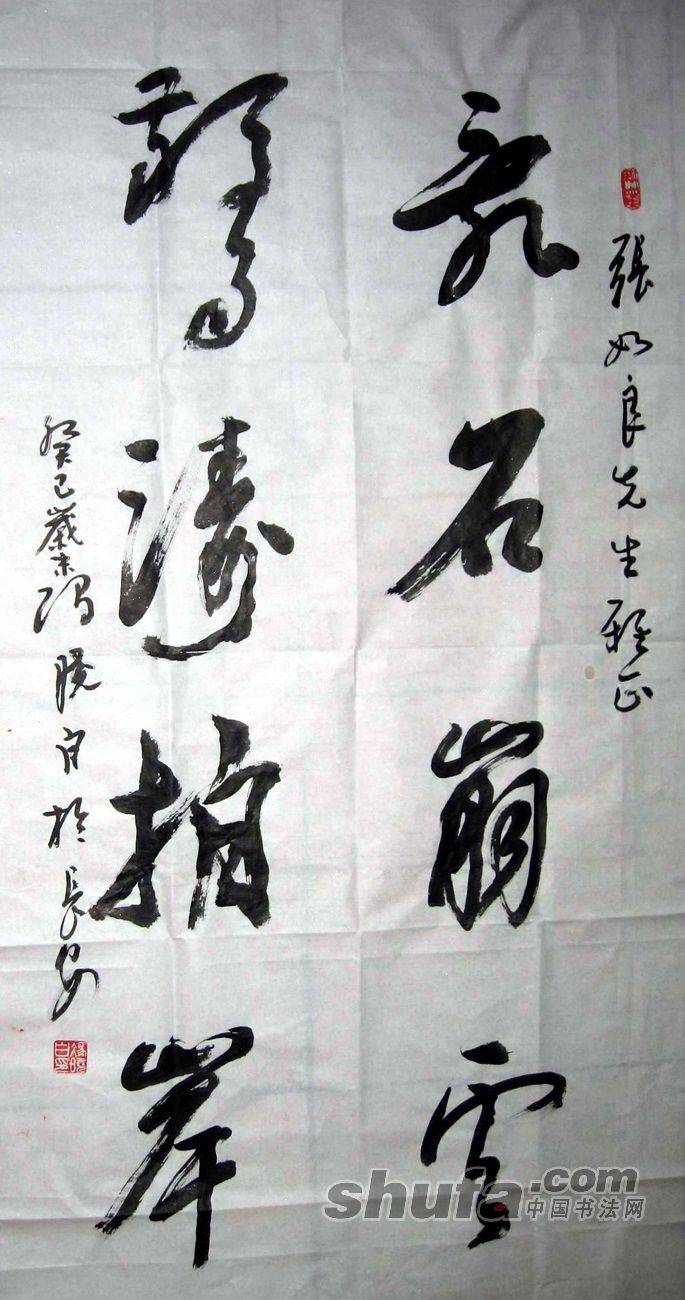 張如良先生雅正
乱石崩雲
驚濤拍岸
癸巳歲末馮曉白於長安
shufa.com
中国书法网